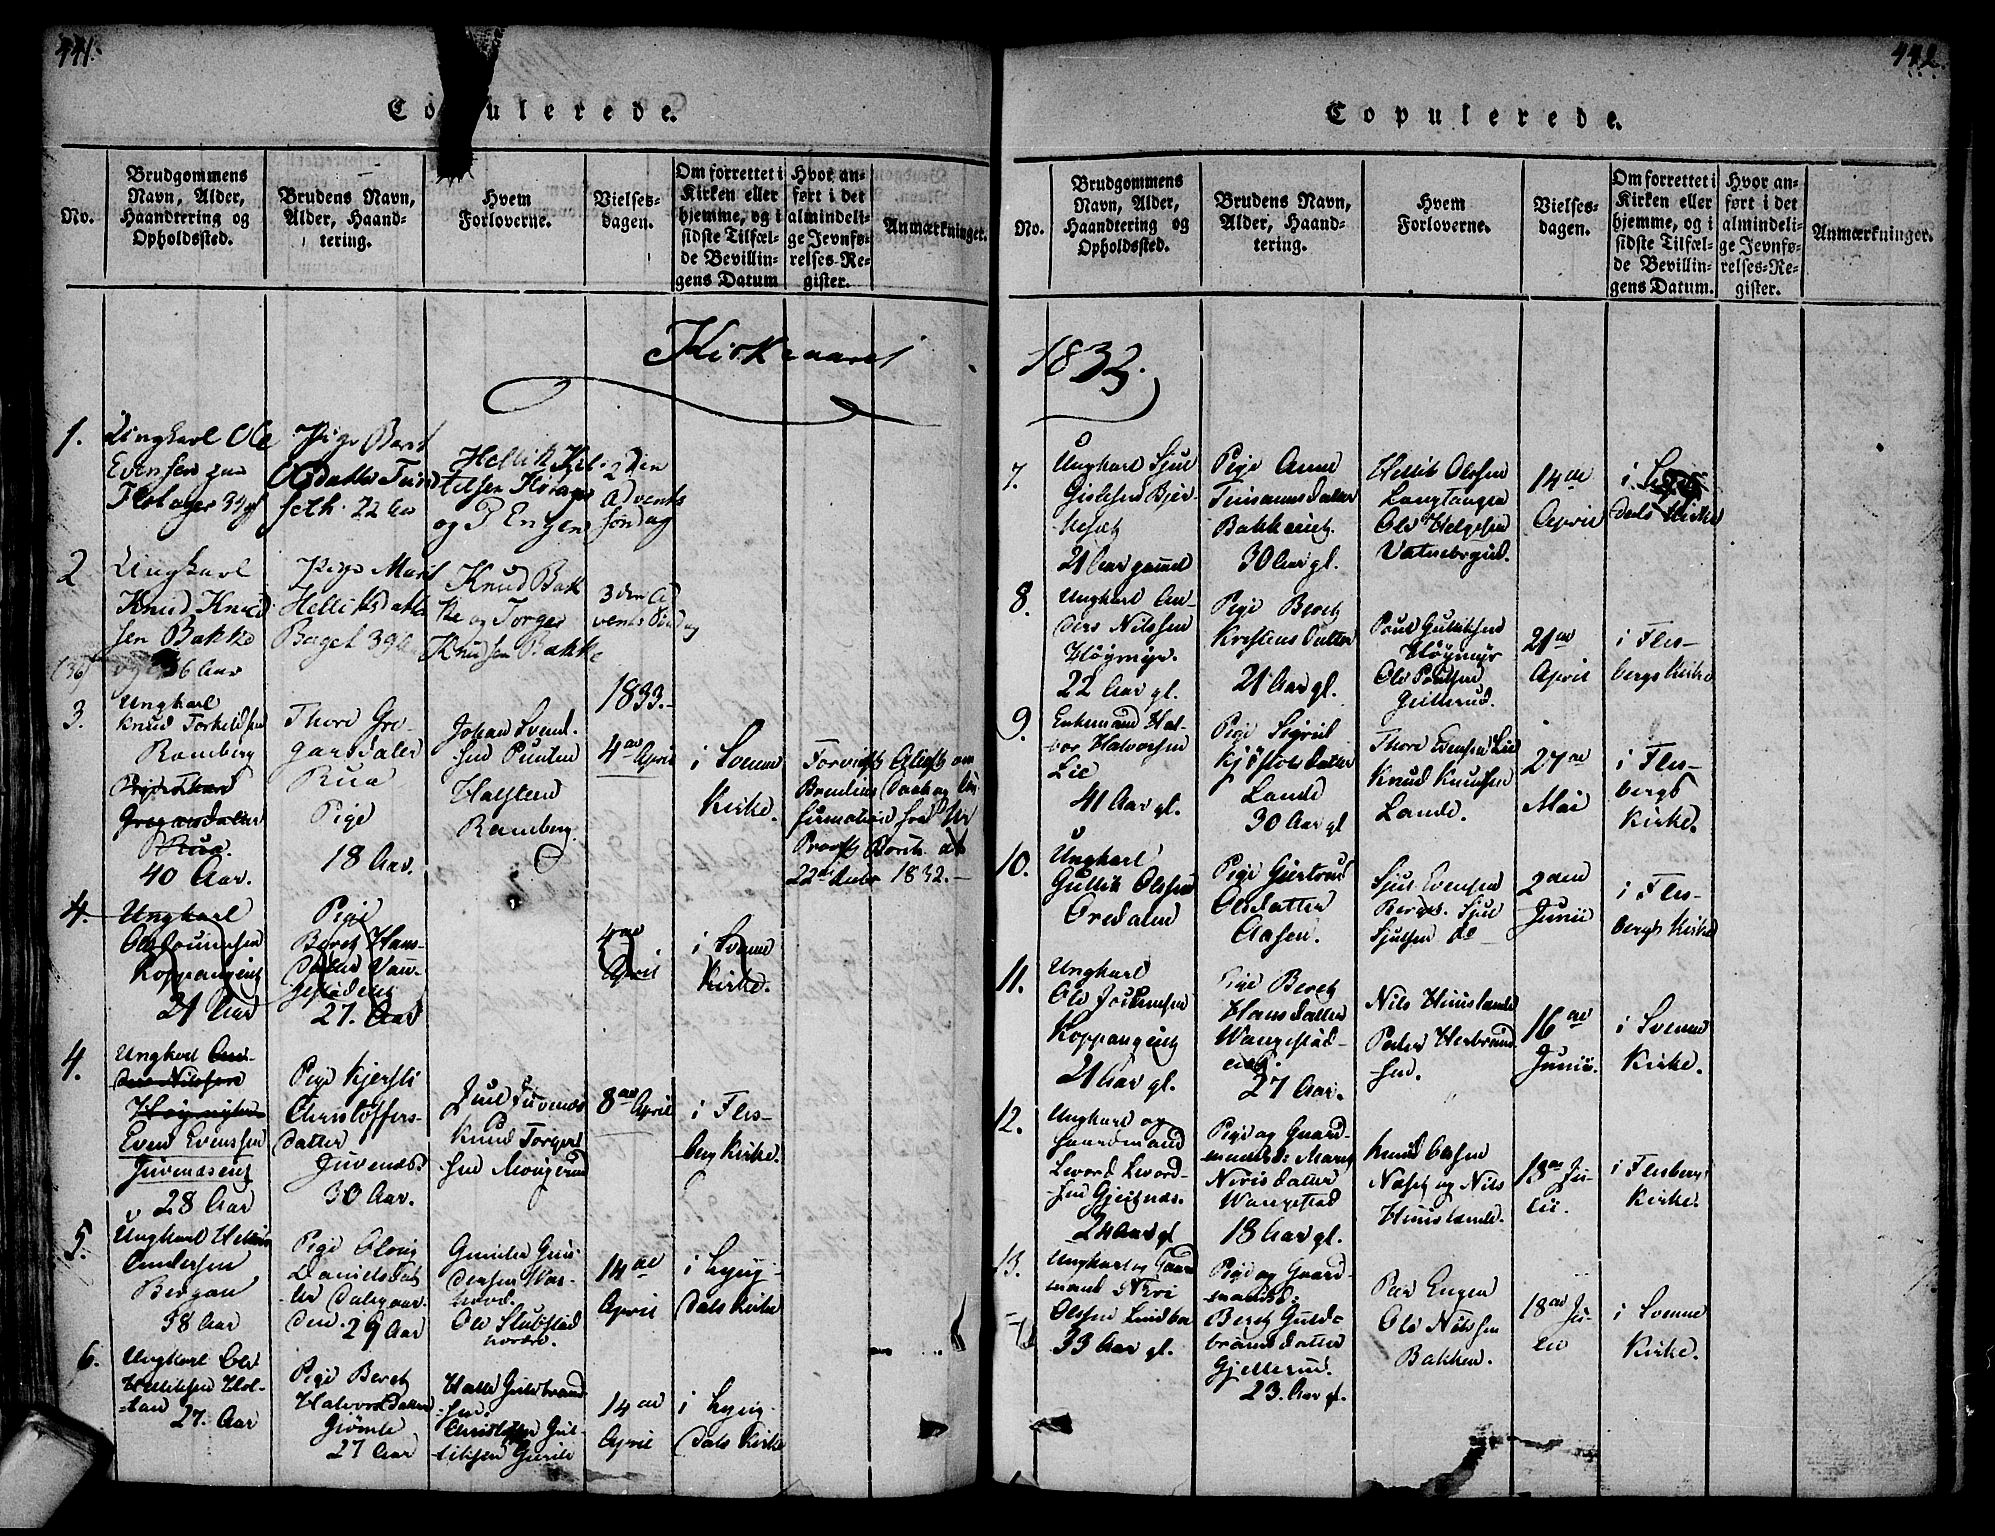 441.
Copulerede.
No.
Brudgommens
Navn, Alder,
Haandtering og
Opholdssted.
Brudens Navn,
Alder, Haand-
tering.
Hvem
Forloverne.
Vielses-
dagen.
Om forrettet i
Kirken eller
hjemme, og i
sidste Tilfæl-
de Bevillin-
gens Datum
Hvor an-
ført i det
almindeli-
ge Jevnfø-
relses-Re-
gister.
Anmærkninger.
Kirkeaaret
1.
Ungkarl Ole
Evensen
39
Pige Berit
Olsdatter
22 Aar
Hellik Kit-
telsen
og P Engen
2den
Advents
Søndag
2
Ungkarl
Knud Knud
sen Bakke
36 Aar
Pige Marit
Helliksdatter
Baget 39
Knud Bak
ke og Torger
Knudsen Bakke
3den Ad
vents Søndag
1833.
3.
Ungkarl
Knud Torkeldsen
Ramberg
Gregarsdatter
Rua.
40 Aar.
Thore Gre-
garsdater
Rua
Pige
18 Aar.
Johan Svend-
sen Puuten
Halsteen
Ramberg.
4de April
i Svene
Kirke.
22de 1832.
4.
Ungkarl
Ole Jounsen
Koppangeiet
21 Aar
Pige
Beret Hans-
datter Van-
gestadeiet
27. Aar
4de
April
i Svene
Kirke.
4.
Ungkarl An-
ders Nilssen
Høymyhr
Even Evenssen
Juvenaseiet
28 Aar
Pige Kjersti
Christoffers-
datter
Juvenæs.
30 Aar.
Juel Juvenæs
Knud Torger
sen Mougerud
8de April
i Fles-
berg Kirke.
5.
Ungkarl Hellik
Andersen
Bergan
38 Aar
Pige
Danielsdat
ter Dalegaar-
den. 29 Aar
Gunder Gun-
dersen
Ole Slubstad
nordre
14de
April
i Lyng-
dals Kirke
6.
Ungkarl Ole
Helliksen Hol-
tan
27. Aar
Pige Beret
Halvorsdatter
Gjømle
27 Aar
Halle Guldbrand
sen.
Christoffer Gul-
liksen
14de
April
i Lyng-
dals Kirke
442.
Copulerede.
No.
Brudgommens
Navn, Alder,
Haandtering og
Opholdssted.
Brudens Navn,
Alder, Haand-
tering.
Hvem
Forloverne.
Vielses-
dagen.
Om forrettet i
Kirken eller
hjemme, og i
sidste Tilfæl-
de Bevillin-
gens Datum.
Hvor an-
ført i det
almindeli-
ge Jevnfø-
relses-Re-
gister.
Anmærkninger.
1833.
7.
Ungkarl Sjul
Gislesen Bjer-
keset
21 Aar gamel
Pige Anne
Tinsdatter
Bakkeeiet.
30 Aar gl.
Hellik Olssen
Langtangen
Ole Helgesen
Vatnebryn
14de
April
i
dals Kirke
8.
Ungkarl An-
ders Nilssen
Høymyr.
22 Aar gl.
Pige Beret
Kristensdatter
21 Aar gl.
Poul Gulliksen
Høymyr
Ole Poulsen
Gjellerud.
21de
April
i Fles-
bergs Kirke
9.
Enkemand Hal-
vor Halvorsen
Lie
41 Aar gl.
Pige Sigrid
Kjøstolsdatter
Lande
30 Aar gl
Thore Evensen Lie
Knud Knudsen
Lande.
27de
Mai
i Fles-
bergs
Kirke.
10.
Ungkarl
Gullik Olssen
Øredalen
Pige Gjertrud
Olsdatter
Aasen.
Sjul Evensen
Berget. Sjul
Sjulsen do
2den
Junii
i Fles-
bergs Kirke
11.
Ungkarl
Ole Jounsen
Koppangeiet
21 Aar gl.
Pige Beret
Hansdatter
Wangestad-
eiet.
27 Aar.
Nils Huuslænde
Peder Herbrand
sen.
16de
Junii.
i Svene
Kirke.
12.
Ungkarl og
Gaardmand
Levord Levord-
sen Gjeitnæs.
24 Aar gl
Pige og Gaard-
mandsd: Marit
Nirisdatter
Wangestad
18 Aar gl.
Knud Olsen
Næset og Nils
Huuslænde.
13de Ju-
lii.
i Flesbergs
Kirke.
13.
Ungkarl og Gaard
mand Niri
Olssen Lindbo
33 Aar gl.
Pige og Gaard-
mandsd:
Beret Guld-
brandsdatter
Gjellerud.
23. Aar gl.
Per Engen
Ole Nilssen
Bakken.
18de Ju-
lii
i Svene
Kirke.